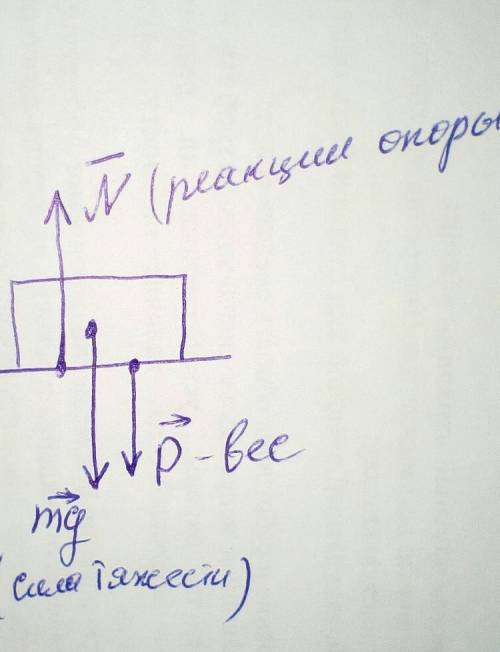 N (реакции опоры
P - вес
mg
(сила тяжести)